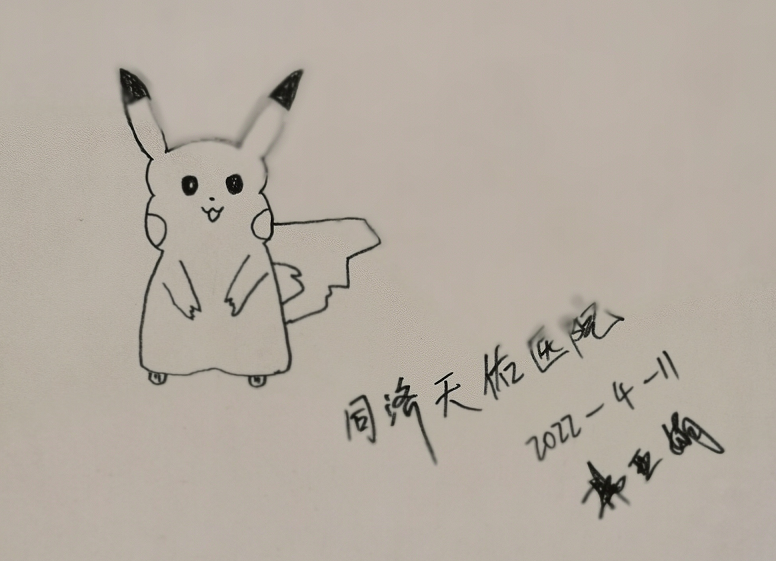 同济天佑医院
2022-4-11